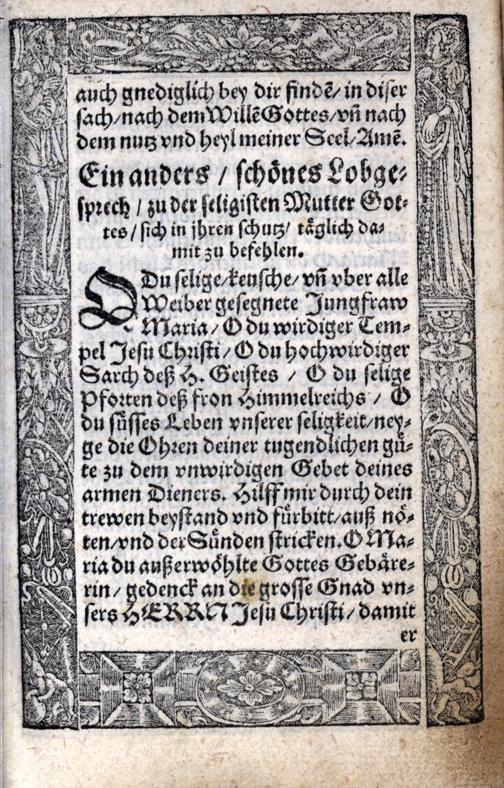 auch gnediglich bey dir findẽ/ in diser
sach/ nach dem Willẽ Gottes/ vñ nach
dem nutz vnd heyl meiner Seel/ Amẽ.
Ein anders / schönes Lobge-
sprech / zu der seligisten Mutter Got-
tes / sich in jhren schutz/ täglich da-
mit zu befehlen.
O Du selige/ keusche/ vñ vber alle
Weiber gesegnete Jungfraw
Maria/ O du wirdiger Tem-
pel Jesu Christi/ O du hochwirdiger
Sarch deß H. Geistes / O du selige
Pforten deß fron Himmelreichs / O
du süsses Leben vnserer seligkeit/ ney-
ge die Ohren deiner tugendlichen gü-
te zu dem vnwirdigen Gebet deines
armen Dieners. Hilff mir durch dein
trewen beystand vnd fürbitt/ auß nö-
ten/ vnd der Sünden stricken. O Ma-
ria du außerwöhlte Gottes Gebäre-
rin/ gedenck an die grosse Gnad vn-
sers HERRN Jesu Christi/ damit
er